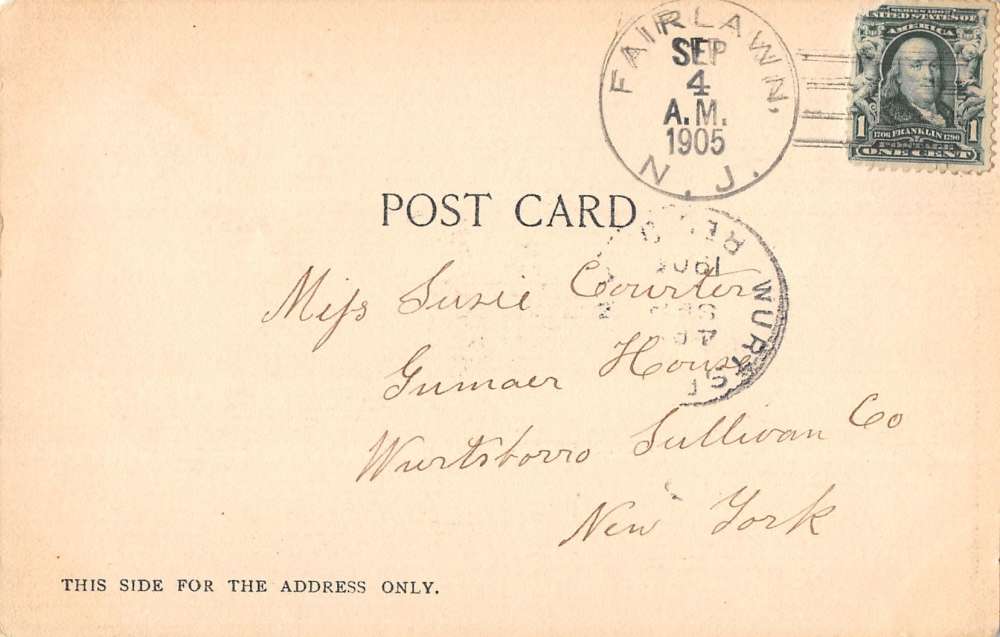 FAIRLAWN,
SEP
4
A.M.
1905
N.J.
SERIES 1902
UNITED STATES OF
AMERICA
1 1706 FRANKLIN 1790 1
POSTAGE
ONE CENT
POST CARD
REC
1905
SEP
4
WURTS
Miss Susie Courter
Gumaer House
Wurtsborro Sullivan Co
New York
THIS SIDE FOR THE ADDRESS ONLY.